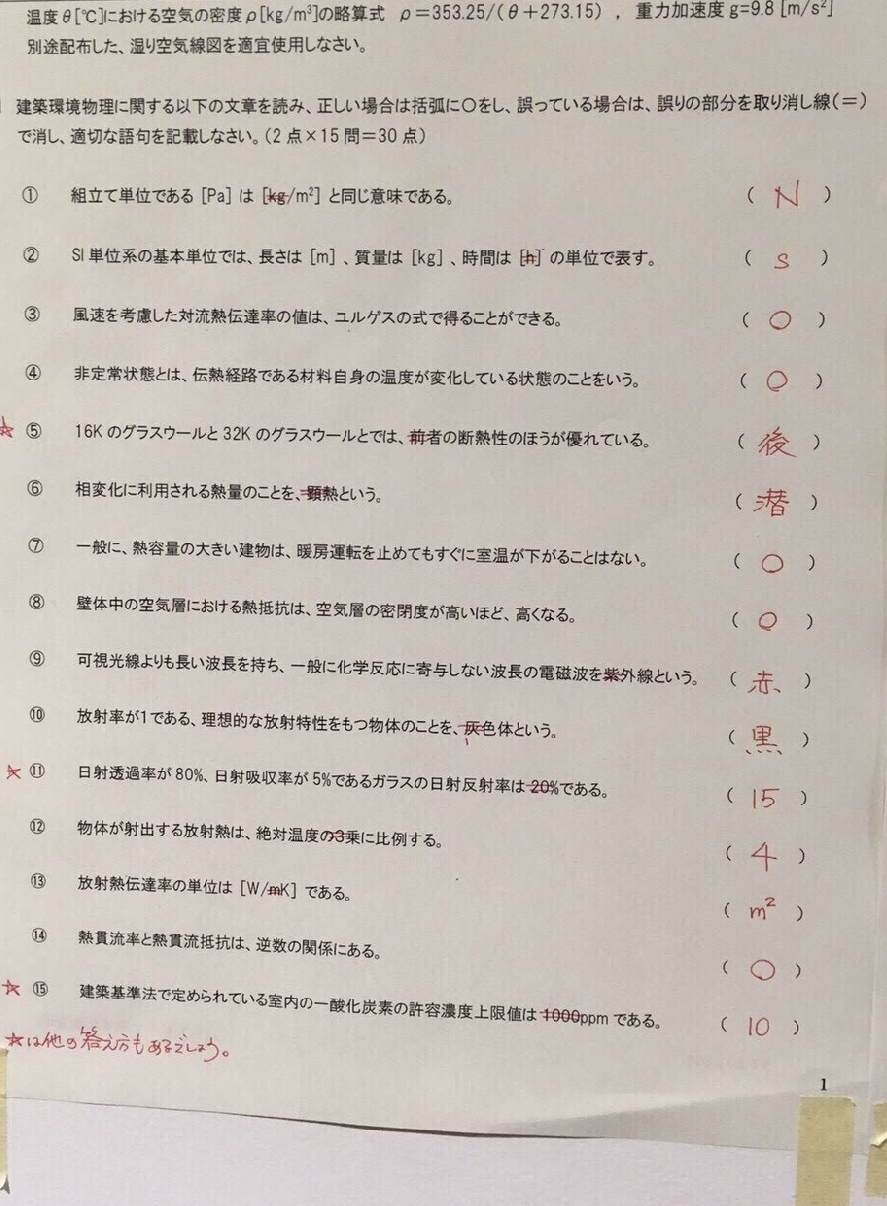 温度θ[℃]における空気の密度ρ[kg/m³]の略算式 ρ＝353.25/(θ+273.15) , 重力加速度 g=9.8 [m/s²]
別途配布した、湿り空気線図を適宜使用しなさい。
建築環境物理に関する以下の文章を読み、正しい場合は括弧に○をし、誤っている場合は、誤りの部分を取り消し線(＝)
で消し、適切な語句を記載しなさい。(2点×15問＝30点)
① 組立て単位である [Pa] は [kg/m²] と同じ意味である。 ( N )
② SI単位系の基本単位では、長さは [m] 、質量は [kg] 、時間は [h] の単位で表す。 ( s )
③ 風速を考慮した対流熱伝達率の値は、ユルゲスの式で得ることができる。 ( ○ )
④ 非定常状態とは、伝熱経路である材料自身の温度が変化している状態のことをいう。 ( ○ )
☆ ⑤ 16Kのグラスウールと32Kのグラスウールとでは、前者の断熱性のほうが優れている。 ( 後 )
⑥ 相変化に利用される熱量のことを、顕熱という。 ( 潜 )
⑦ 一般に、熱容量の大きい建物は、暖房運転を止めてもすぐに室温が下がることはない。 ( ○ )
⑧ 壁体中の空気層における熱抵抗は、空気層の密閉度が高いほど、高くなる。 ( ○ )
⑨ 可視光線よりも長い波長を持ち、一般に化学反応に寄与しない波長の電磁波を紫外線という。 ( 赤 )
⑩ 放射率が1である、理想的な放射特性をもつ物体のことを、灰色体という。 ( 黒 )
☆ ⑪ 日射透過率が80%、日射吸収率が5%であるガラスの日射反射率は20%である。 ( 15 )
⑫ 物体が射出する放射熱は、絶対温度の3乗に比例する。 ( 4 )
⑬ 放射熱伝達率の単位は [W/mK] である。 ( m² )
⑭ 熱貫流率と熱貫流抵抗は、逆数の関係にある。 ( ○ )
☆ ⑮ 建築基準法で定められている室内の一酸化炭素の許容濃度上限値は1000ppmである。 ( 10 )
☆は他の答え方もあるでしょう。
1